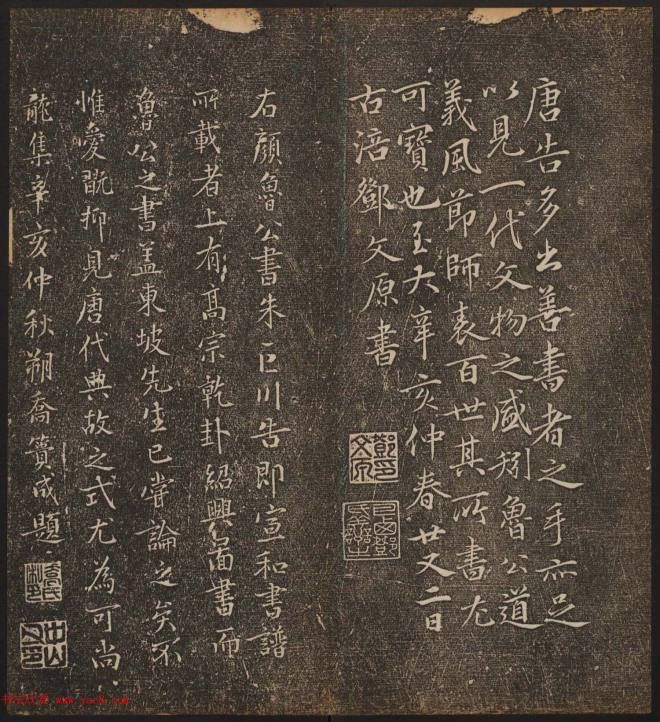 唐告多出善書者之手亦足
以見一代文物之盛矧魯公道
義風節師表百世其所書尤
可寶也至大辛亥仲春廿又二日
古涪鄧文原書
右顏魯公書朱巨川告即宣和書譜
所載者上有高宗乾卦紹興圖書而
魯公之書蓋東坡先生已嘗論之矣不
惟愛翫抑見唐代典故之式尤為可尚
龍集辛亥仲秋朔喬簣成題